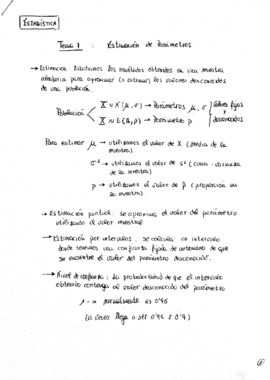 ESTADÍSTICA
Tema 7 : Estimación de Parámetros
→ Estimación: Estudiamos los resultados obtenidos en una muestra
aleatoria para aproximar (o estimar) los valores desconocidos
de una población.
Población
X N N(μ, σ) → Parámetros μ, σ
X N B( , p) → Parámetro p
valores fijos
y
desconocidos
Para estimar μ → utilizamos el valor de x̄ (media de la
muestra).
σ² → utilizamos el valor de s² (cuasi-varianza
de la muestra).
p → utilizamos el valor de p̂ (proporción en
la muestra).
→ Estimación puntual: se aproxima el valor del parámetro
utilizando el valor muestral.
→ Estimación por intervalos: se calcula un intervalo
donde tenemos una confianza fijada de antemano de que
se encuentre el valor del parámetro desconocido.
→ Nivel de confianza: la probabilidad de que el intervalo
obtenido contenga al valor desconocido del parámetro
1 - α normalmente es 0'95
(a veces llega a ser 0'99 ó 0'9)